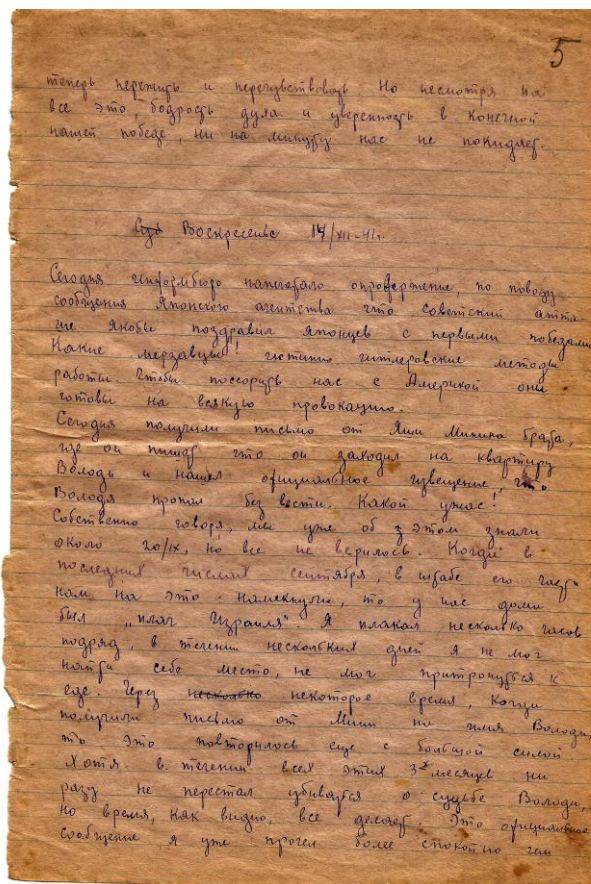 5
теперь пережить и перечувствовать. Но несмотря на
все это, бодрость духа и уверенность в конечной
нашей победе, ни на минуту нас не покидает.
Воскресенье 14/XII-41г.
Сегодня Информбюро напечатало опровержение, по поводу
сообщения Японского агентства что советский атта-
ше якобы поздравил японцев с первыми победами
Какие мерзавцы! истинно гитлеровские методы
работы. Чтобы поссорить нас с Америкой они
готовы на всякую провокацию.
Сегодня получили письмо от Яши Мишина брата,
где он пишет что он заходил на квартиру
Володи и нашел официальное извещение, что
Володя пропал без вести. Какой ужас!
Собственно говоря, мы уже об этом знали
около 20/IX, но все не верилось. Когда в
последних числах сентября, в штабе его части
нам на это намекнули, то у нас дома
был "плач Израиля". Я плакал несколько часов
подряд, в течении нескольких дней я не мог
найти себе место, не мог притронуться к
еде. Через несколько некоторое время, когда
получили письмо от Миши на имя Володи,
то это повторилось еще с большой силой
Хотя в течении всех этих 3х месяцев ни
разу не перестал убиваться о судьбе Володи,
но время, как видно, все делает. Это официальное
сообщение я уже прочел более спокойно чем